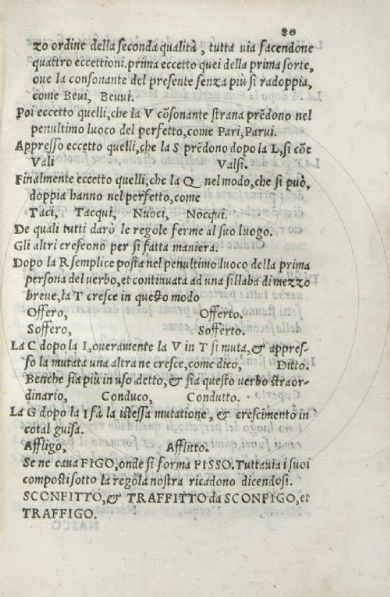 80
zo ordine della seconda qualità, tutta uia facendone
quattro eccettioni. prima eccetto quei della prima sorte,
oue la consonante del presente senza più si radoppia,
come Beui, Beuui.
Poi eccetto quelli, che la V cõsonante strana prẽdono nel
penultimo luoco del perfetto, come Pari, Parui.
Appresso eccetto quelli, che la S prẽdono dopo la L, si cõe
Vali Valsi.
Finalmente eccetto quelli, che la Q nel modo, che si può,
doppia hanno nel perfetto, come
Taci, Tacqui, Nuoci, Nocqui.
De quali tutti darò le regole ferme al suo luogo.
Gli altri crescono per si fatta maniera.
Dopo la R semplice posta nel penultimo luoco della prima
persona del uerbo, et continuata ad una sillaba di mezzo
breue, la T cresce in questo modo
Offero, Offerto.
Soffero, Sofferto.
La C dopo la I, oueramente la V in T si muta, & appres-
so la mutata una altra ne cresce, come dico, Ditto.
Benche sia più in uso detto, & sia questo uerbo straor-
dinario, Conduco, Condutto.
La G dopo la I fà la istessa mutatione, & crescimento in
cotal guisa.
Affligo, Afflitto.
Se ne caua FIGO, onde si forma FISSO. Tuttauia i suoi
composti sotto la regola nostra ricadono dicendosi.
SCONFITTO, & TRAFFITTO da SCONFIGO, et
TRAFFIGO.